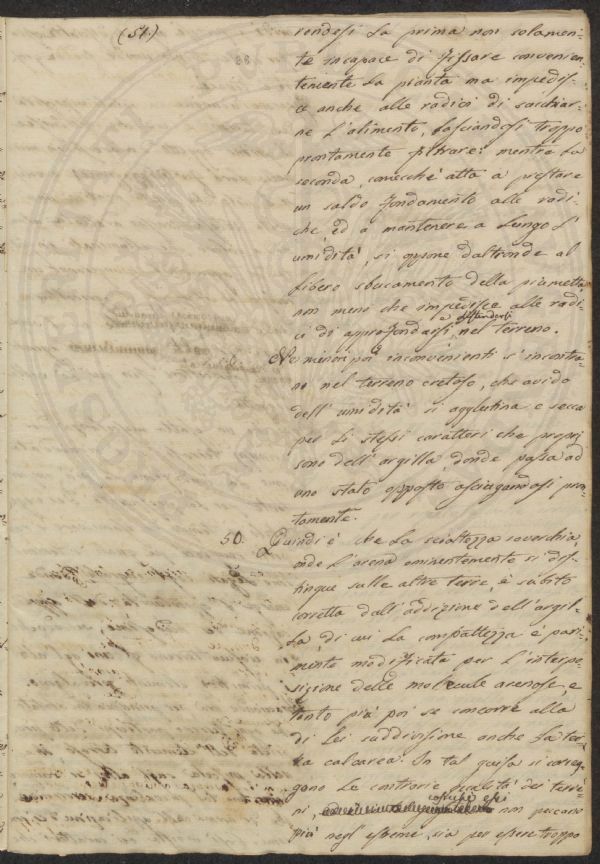 (51.)
rendesi la prima non solamen-
te incapace di fissare convenien-
temente la pianta ma impedis-
ce anche alle radici di succhiar-
ne l'alimento, lasciandosi troppo
prontamente filtrare: mentre la
seconda, comecchè atta a prestare
un saldo fondamento alle radi-
che, ed a mantenere a lungo l'
umidità, si oppone d'altronde al
libero sbucamento della piumetta
non meno che impedisce alle radi-
ci di approfondarsi, o distendersi nel terreno.
Nè minori poi inconvenienti s'incontra-
no nel terreno cretoso, che avido
dell'umidità si agglutina e secca
per li stessi caratteri che proprj
sono dell'argilla, donde passa ad
uno stato opposto asciugandosi pron-
tamente.
50. Quindi è che la scioltezza soverchia,
onde l'arena eminentemente si dis-
tingue sulle altre terre, è subito
corretta dall'addizione dell'argil-
la, di cui la compattezza è pari-
mente modificata per l'interpo-
sizione delle molecule arenose, e
tanto più poi se concorre alla
di lei suddivisione anche la ter-
ra calcarea. In tal guisa si correg-
gono le contrarie qualità dei terre-
ni, cosicchè essi non peccano
più negli estremi, sia per essere troppo